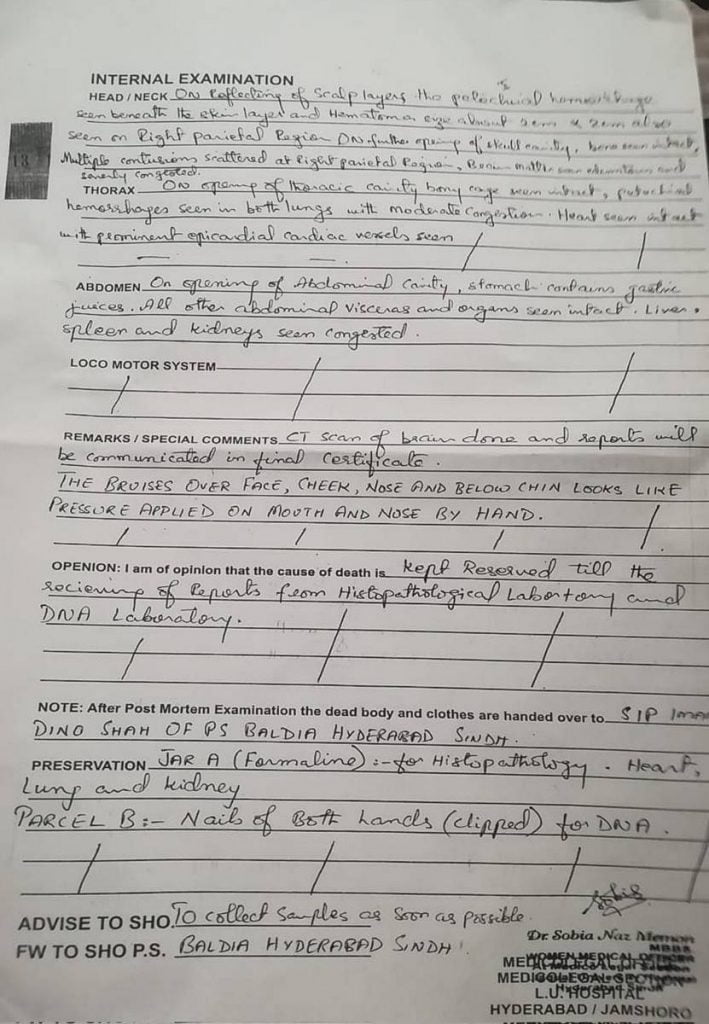 INTERNAL EXAMINATION
HEAD / NECK On Reflecting of Scalp layers the petechial hemorrhage
seen beneath the skin layer and Hematoma size about 2cm x 2cm also
seen on Right parietal Region On further opening of skull cavity, bone seen intact,
Multiple contusions scattered at Right parietal Region, Brain matter seen edematous and
severly congested.
13
THORAX On opening of thoracic cavity bony cage seen intact, petechial
hemorrhages seen in both lungs with moderate congestion. Heart seen intact
with prominent epicardial cardiac vessels seen
ABDOMEN On opening of Abdominal Cavity, stomach contains gastric
juices. All other abdominal visceras and organs seen intact. Liver,
spleen and kidneys seen congested.
LOCO MOTOR SYSTEM
REMARKS / SPECIAL COMMENTS CT scan of brain done and reports will
be communicated in final certificate.
THE BRUISES OVER FACE, CHEEK, NOSE AND BELOW CHIN LOOKS LIKE
PRESSURE APPLIED ON MOUTH AND NOSE BY HAND.
OPENION: I am of opinion that the cause of death is kept Reserved till the
recieving of Reports from Histopathological Labortory and
DNA Laboratory.
NOTE: After Post Mortem Examination the dead body and clothes are handed over to SIP
DINO SHAH OF PS BALDIA HYDERABAD SINDH.
PRESERVATION JAR A (Formaline) :- for Histopathology. Heart,
Lung and kidney
PARCEL B:- Nails of Both hands (clipped) for DNA.
ADVISE TO SHO. To collect samples as soon as possible.
FW TO SHO P.S. BALDIA HYDERABAD SINDH.
Dr. Sobia Naz Memon
MBBS
WOMEN MEDICAL OFFICER
MEDICOLEGAL
MEDICOLEGAL SECTION
L.U. HOSPITAL
HYDERABAD / JAMSHORO